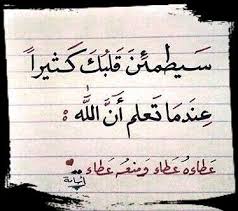 سَيطمئنَ قَلبُكَ كَثيراً
عِندَمَا تَعلم أَنَّ اللَّه :
عَطاءهُ عَطاء وَمنعـه عَطاء